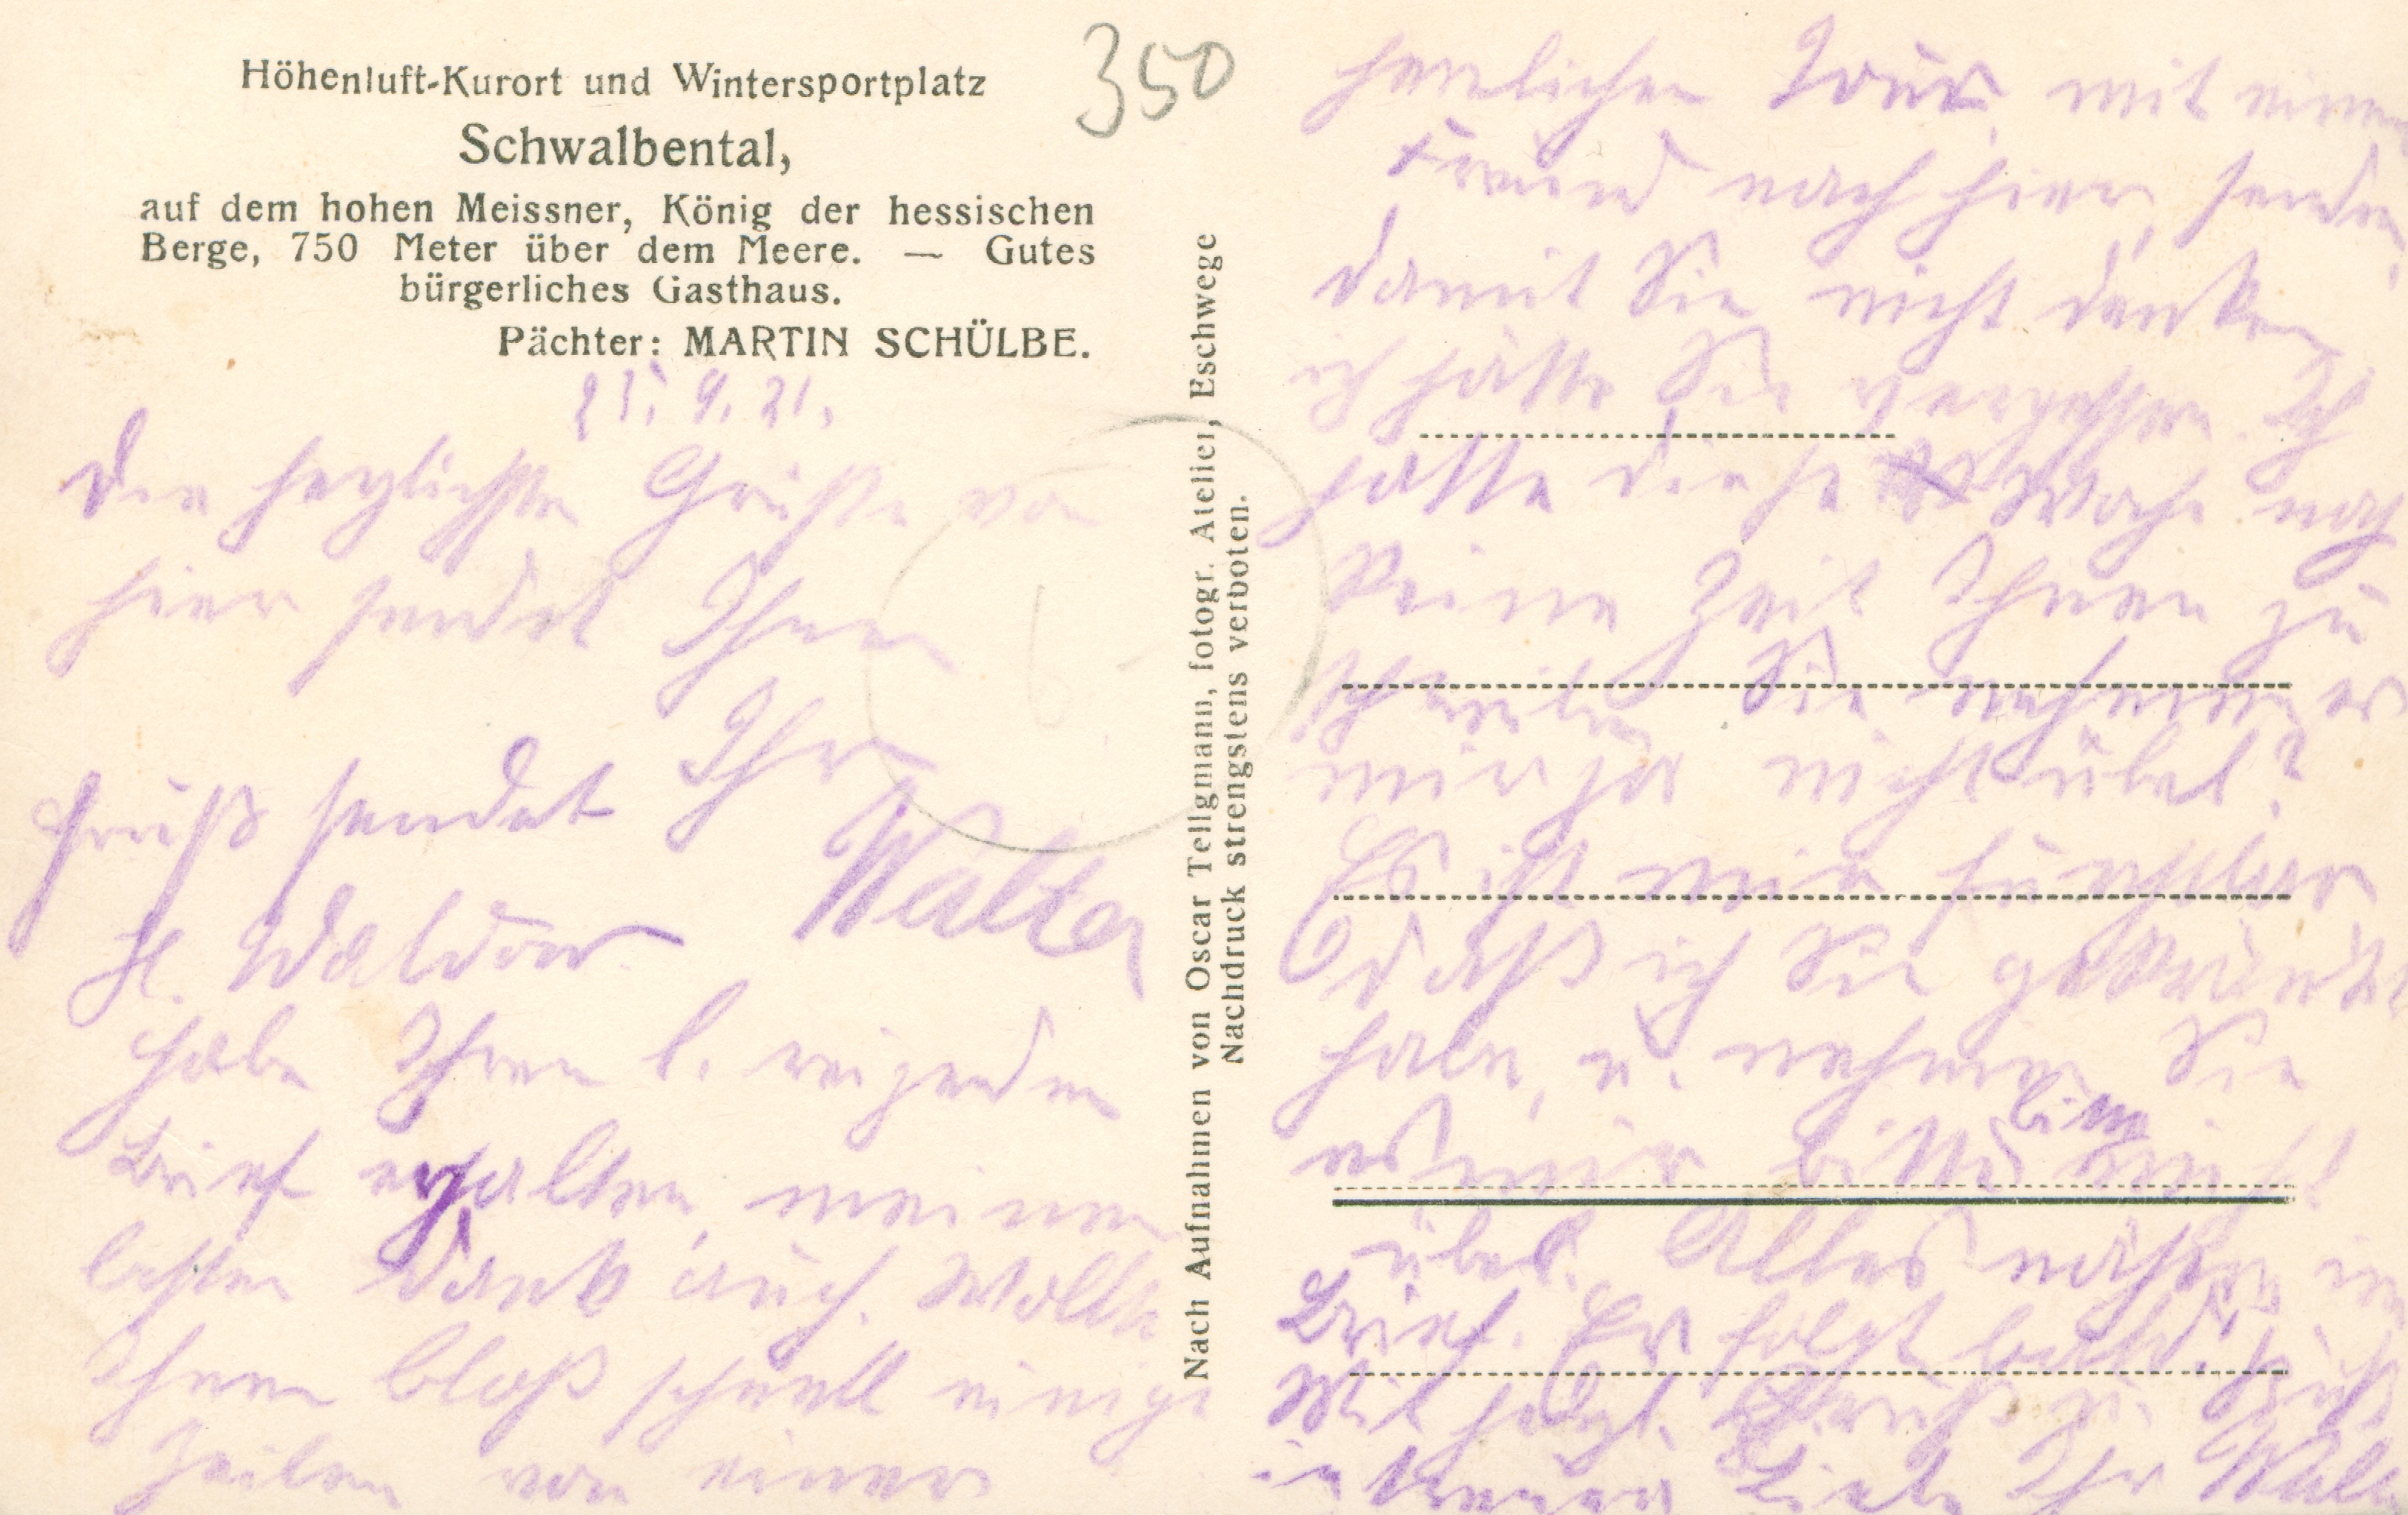 Höhenluft-Kurort und Wintersportplatz
Schwalbental,
auf dem hohen Meissner, König der hessischen
Berge, 750 Meter über dem Meere. — Gutes
bürgerliches Gasthaus.
Pächter: MARTIN SCHÜLBE.
350
21. 9. 21.
Die herzlichsten Grüße von
hier sendet Ihnen
Ihr
Walter
Gruß sendet
H. Waldow
habe Ihren l. reizenden
Brief erhalten, meinen
besten Dank auch. Wollte
Ihnen bloß schnell einige
Zeilen von einer
Nach Aufnahmen von Oscar Tellgmann, fotogr. Atelier, Eschwege
Nachdruck strengstens verboten.
herrlichen Tour, mit einem
Freund nach hier, senden,
damit Sie nicht denken
ich hätte Sie vergessen. Ich
hatte diese Woche noch
keine Zeit Ihnen zu
schreiben Sie nehmen es
mir ja nicht übel?
Es ist mir
daß ich Sie gekränkt
habe, u. nehmen Sie
es mir bitte nicht
übel. Alles nähere im
Brief. Er folgt bald.
Mit herzl. Gruß u. Kuß
in treuer Liebe Ihr Walter